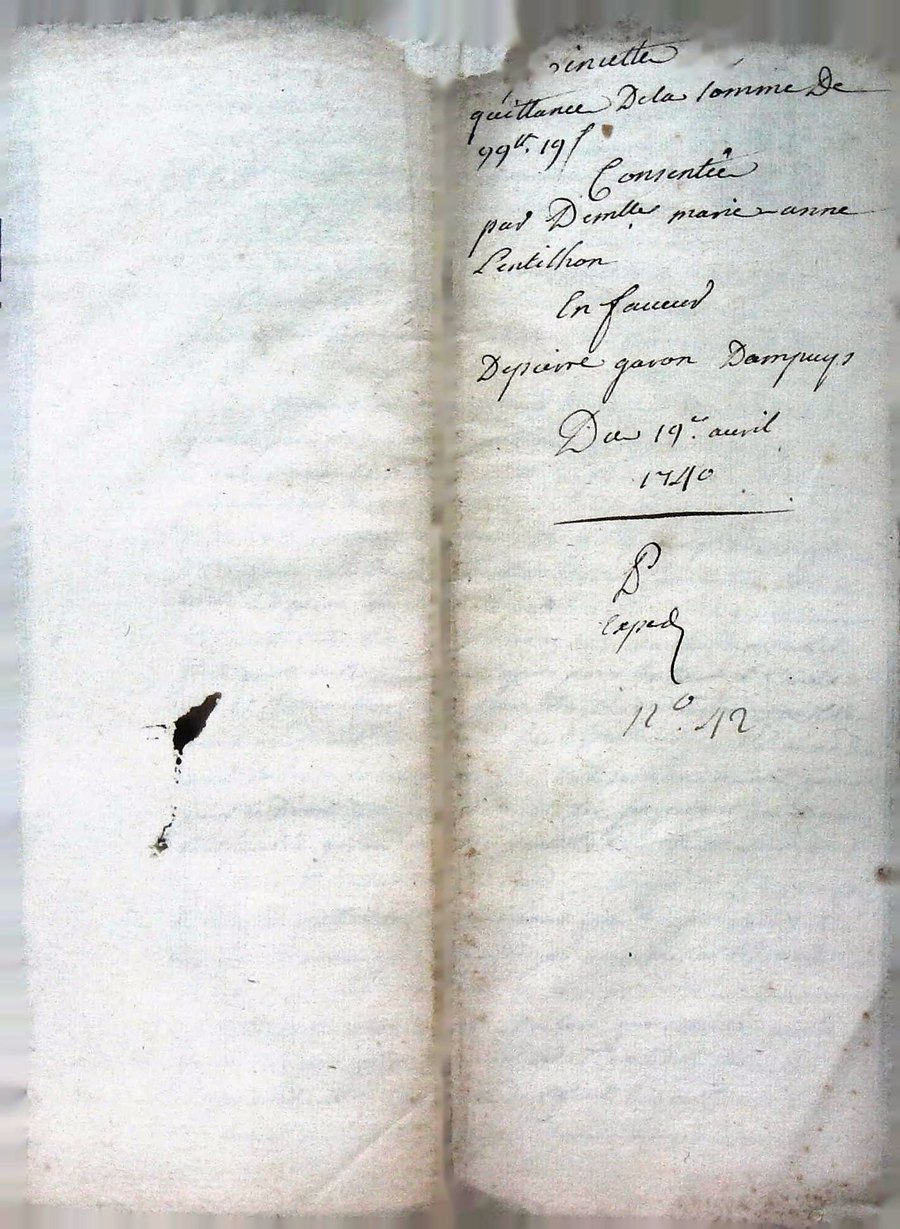 quittance Dela somme De
99ᵗᵗ. 19 ſ
Consentie
par Demlle marie-anne
Lentilhon
En faveur
De pierre gavon Dampuys
Du 19e. avril
1740
Exped
n°. 42